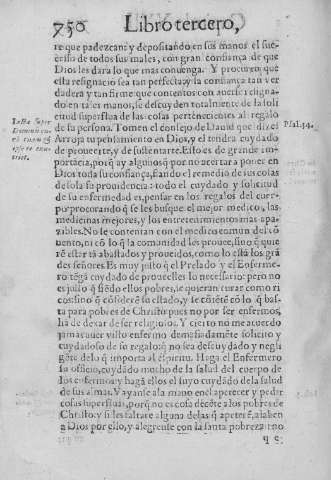 750 Libro tercero,
re que padezcan: y depositando en sus manos el suc-
cesso de todos sus males, con gran confiança de que
Dios les dara lo que mas conuenga. Y procuren que
esta resignació sea tan perfecta: y la confiança tan ver
dadera y tan firme que contentos con auerse resigna-
do en tales manos, se descuyden totalmente de la soli
citud superflua de las cosas pertenecientes al regalo
de su persona. Tomen el consejo de Dauid que dize: Psal. 54.
Arroja tu pensamiento en Dios, y el tendra cuydado
de proueerte, y de sustentarte. Esto es de grande im-
portácia, porq̃ ay algunos q̃ por no acertar a poner en
Dios toda su confiança, fiando el remedio de sus cosas
de sola su prouidencia: todo el cuydado y solicitud
de su enfermedad es, pensar en los regalos del cuer-
po: procurando q̃ se les busque el mejor medico, las
medicinas mejores, y los entretenimientos mas apa-
zibles. No se contentan con el medico comun del có
uento, ni có lo q̃ la comunidad les prouee, sino q̃ quie
ré estar tá abastados y proueidos, como lo está los grá
des señores. Es muy justo q̃ el Prelado y el Enferme-
ro tégá cuydado de proueelles lo necessario: pero no
es justo q̃ siédo ellos pobres, se quieran curar como ri
cos: sino q̃ cósideré su estado, y se cóteté có lo q̃ bas-
ta para pobres de Christo: pues no por ser enfermos,
há de dexar de ser religiosos. Y cierto no me acuerdo
jamas auer visto enfermo demasiadaméte solicito y
cuydadoso de su regalo: q̃ no sea descuydado y negli
géte delo q̃ importa al espiritu. Haga el Enfermero
su officio, cuydado mucho de la salud del cuerpo de
los enfermos: y hagá ellos el suyo cuydado dela salud
de sus almas. Y ayanse ala mano en el apetecer y pedir
cosas superfluas, porq̃ no es cosa decéte a los pobres de
Christo: y si les faltare alguna delas q̃ apeteré, alaben
a Dios por ello, y alegrense con la santa pobreza: no